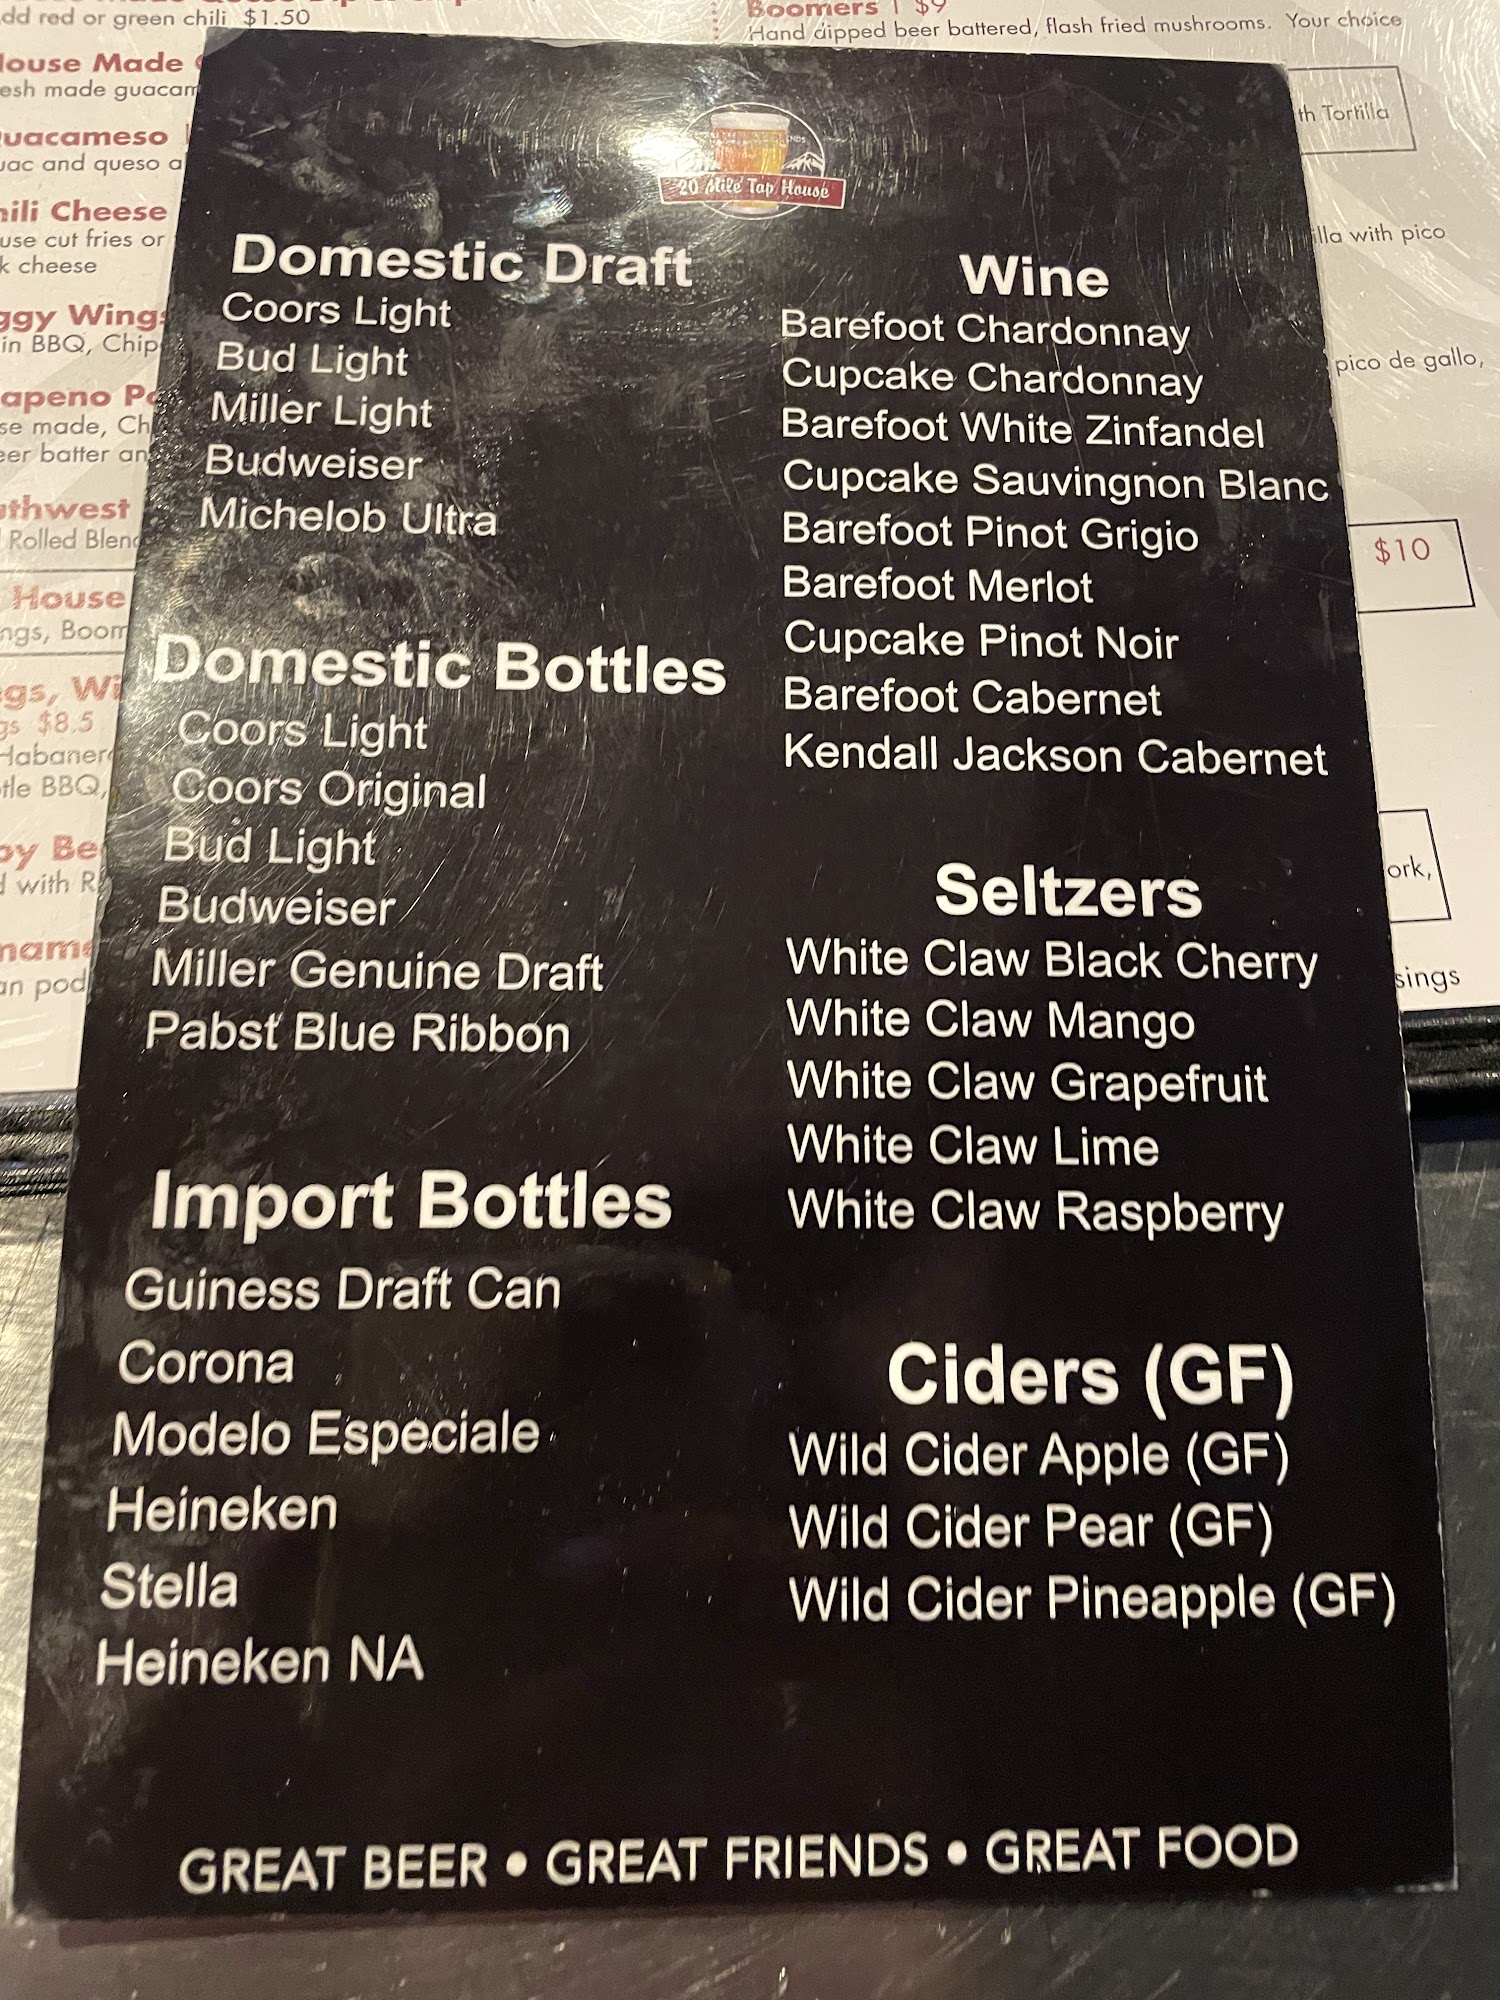 dd red or green chili $1.50
House Made
esh made guacam
uacameso
uac and queso a
hili Cheese
use cut fries or
k cheese
ggy Wings
in BBQ, Chip
apeno Po
se made, Ch
eer batter an
uthwest
Rolled Blend
House
ngs, Boom
gs, Wi
gs $8.5
Habanero
tle BBQ,
by Be
d with R
name
an pod
Boomers | $9
Hand dipped beer battered, flash fried mushrooms. Your choice
th Tortilla
illa with pico
pico de gallo,
$10
ork,
sings
20 Mile Tap House
Domestic Draft
Coors Light
Bud Light
Miller Light
Budweiser
Michelob Ultra
Domestic Bottles
Coors Light
Coors Original
Bud Light
Budweiser
Miller Genuine Draft
Pabst Blue Ribbon
Import Bottles
Guiness Draft Can
Corona
Modelo Especiale
Heineken
Stella
Heineken NA
Wine
Barefoot Chardonnay
Cupcake Chardonnay
Barefoot White Zinfandel
Cupcake Sauvingnon Blanc
Barefoot Pinot Grigio
Barefoot Merlot
Cupcake Pinot Noir
Barefoot Cabernet
Kendall Jackson Cabernet
Seltzers
White Claw Black Cherry
White Claw Mango
White Claw Grapefruit
White Claw Lime
White Claw Raspberry
Ciders (GF)
Wild Cider Apple (GF)
Wild Cider Pear (GF)
Wild Cider Pineapple (GF)
GREAT BEER • GREAT FRIENDS • GREAT FOOD